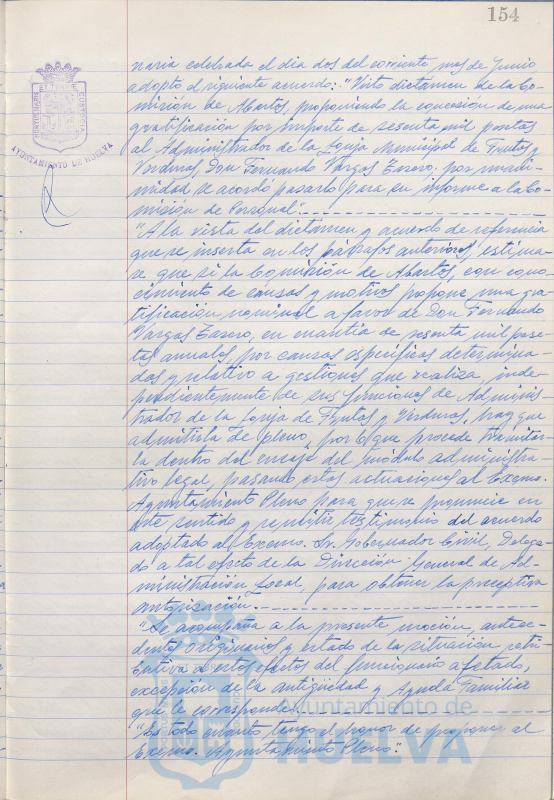 154
naria celebrada el dia dos del corriente mes de Junio
adoptó el siguiente acuerdo: "Visto dictamen de la Co-
misión de Abastos, proponiendo la concesión de una
gratificación por importe de sesenta mil pesetas
al Administrador de la Lonja Municipal de Frutas y
Verduras, Don Fernando Vargas Tasero; por unani-
midad se acordó pasarlo para su informe a la Co-
misión de Personal".
"A la vista del dictamen y acuerdo de referencia
que se inserta en los párrafos anteriores, estima-
se que si la Comisión de Abastos, con cono-
cimiento de causas y motivos propone una gra-
tificación, nominal a favor de Don Fernando
Vargas Tasero, en cuantía de sesenta mil pese-
tas anuales, por causas específicas determina-
das y relativo a gestiones que realiza, inde-
pendientemente de sus funciones de Adminis-
trador de la Lonja de Frutas y Verduras, hay que
admitirla de pleno, por lo que procede tramitar-
la dentro del encaje del módulo administra-
tivo legal, pasando estas actuaciones al Excmo.
Ayuntamiento Pleno para que se pronuncie en
este sentido y remitir testimonio del acuerdo
adoptado al Excmo. Sr. Gobernador Civil, Delega-
do a tal efecto de la Dirección General de Ad-
ministración Local, para obtener la preceptiva
autorización.
"Se acompaña a la presente moción, antece-
dentes originarios y estado de la situación retri-
butiva a estos efectos del funcionario afectado,
excepción de la antigüedad y Ayuda Familiar
que le corresponde.
"Es todo cuanto tengo el honor de proponer al
Excmo. Ayuntamiento Pleno".
AYUNTAMIENTO DE HUELVA
Ayuntamiento de
HUELVA